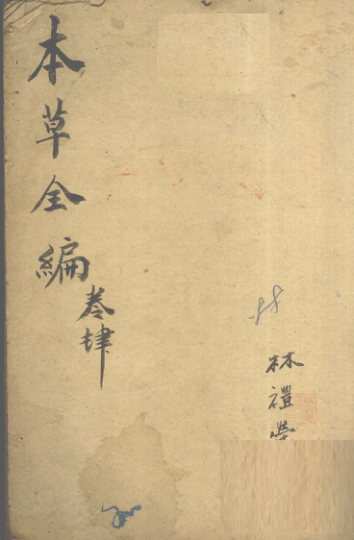 本草全編
卷肆
林禮